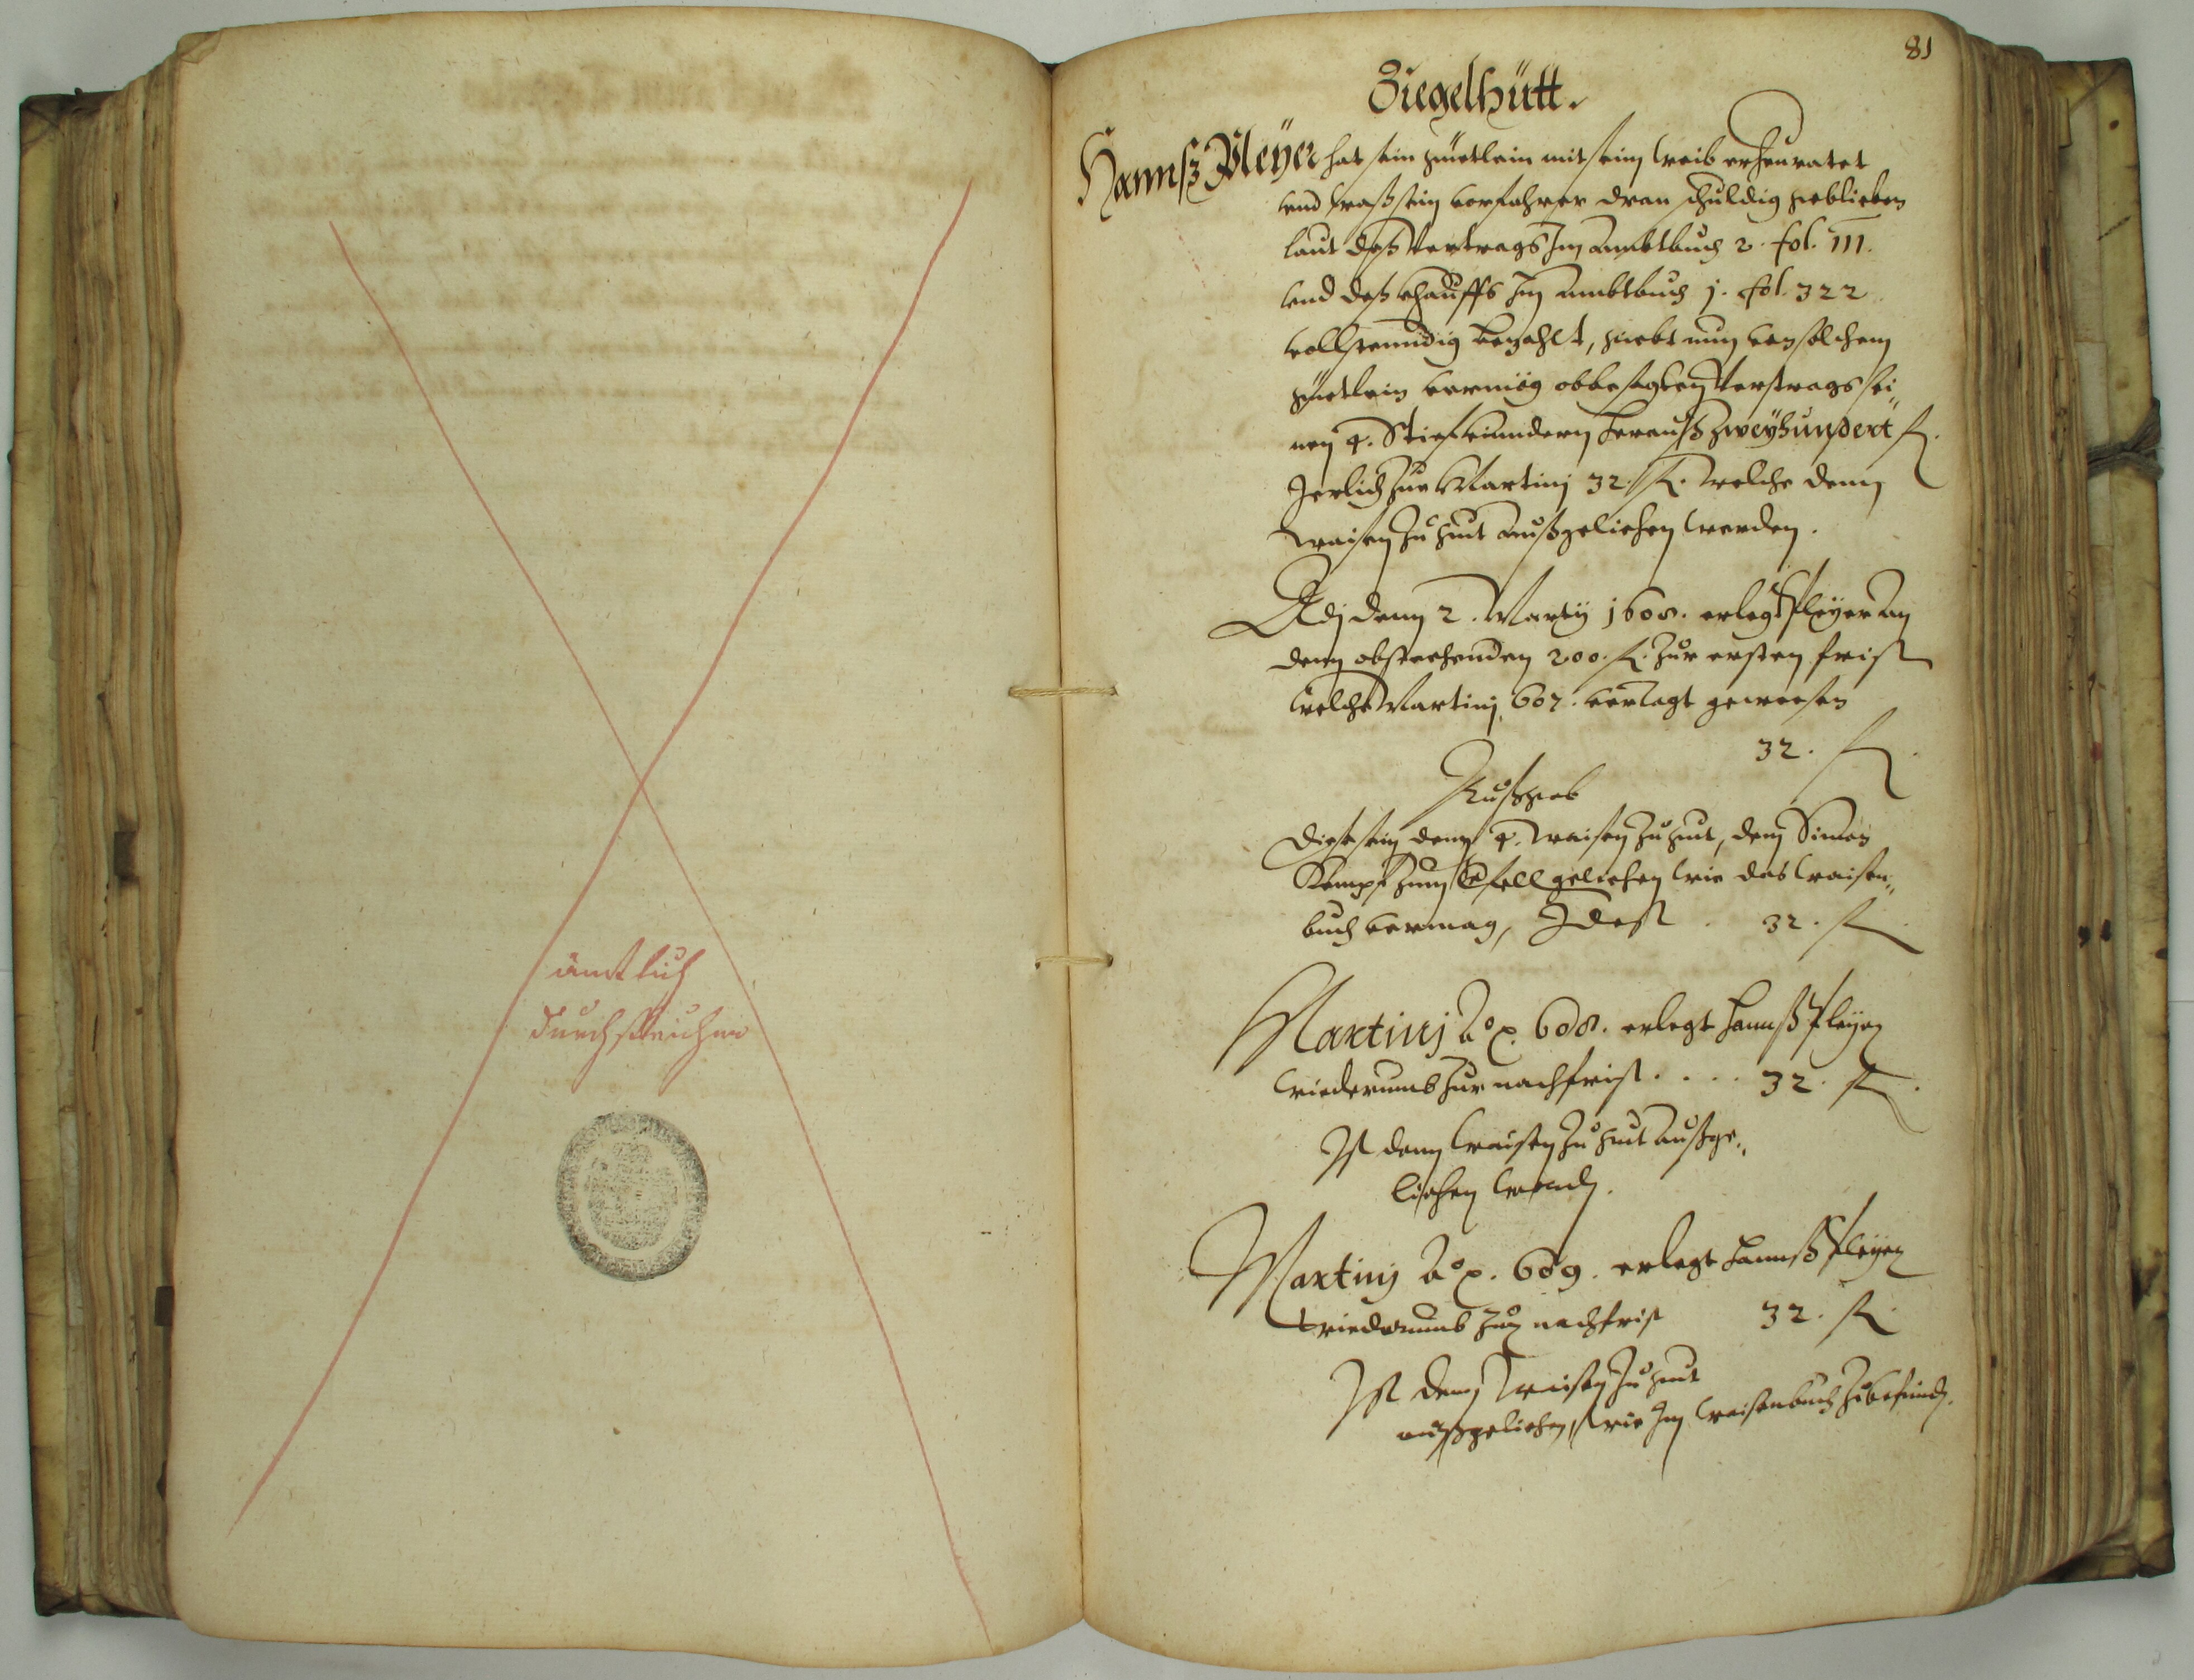 ämtlich
durchstrichen
81
Ziegelhütt.
Hannß Pleÿer hat sein güetlein mit seim weib erheuratet
vnd waß sein vorfahrer dran schuldig geblieben
laut deß Vertrags Jm Ambtbuch 2. fol. 111.
vnd deß khauffs Jm Ambtbuch j. fol. 322
vollstenndig bezahlt, giebt nun von solchem
güetlein vermög obbesagten Vertrags sei„
nen 4. Stiefkinndern herauß zweÿhundert fl.
Jerlich zue Martinj 32. fl. welche denn
waisen zu guet außgeliehen werden.
Adj denn 2. Martij j608. erlegt Pleÿer an
denn obstehenden 200. fl. zur ersten frist
welche Martinj 607. verlagt gewesen
32. fl.
Außgeb
Diese sein denn 4. waisen zu guet, dem Simon
Kempf zum geliehen wie das waisen„
buch vermag, Jdest . 32. fl.
Martinj Aº p. 608. erlegt Hannß Pleÿer
wiederumb zur nachfrist . . . . 32. fl.
Jst denn waisen zu guet außge„
liehen worden.
Martinj Aº p. 609. erlegt Hannß Pleÿer
wiederumb zur nachfrist 32. fl.
Jst denn waisen zu guet
außgeliehen, wie Jm waisenbuch zubefinden.